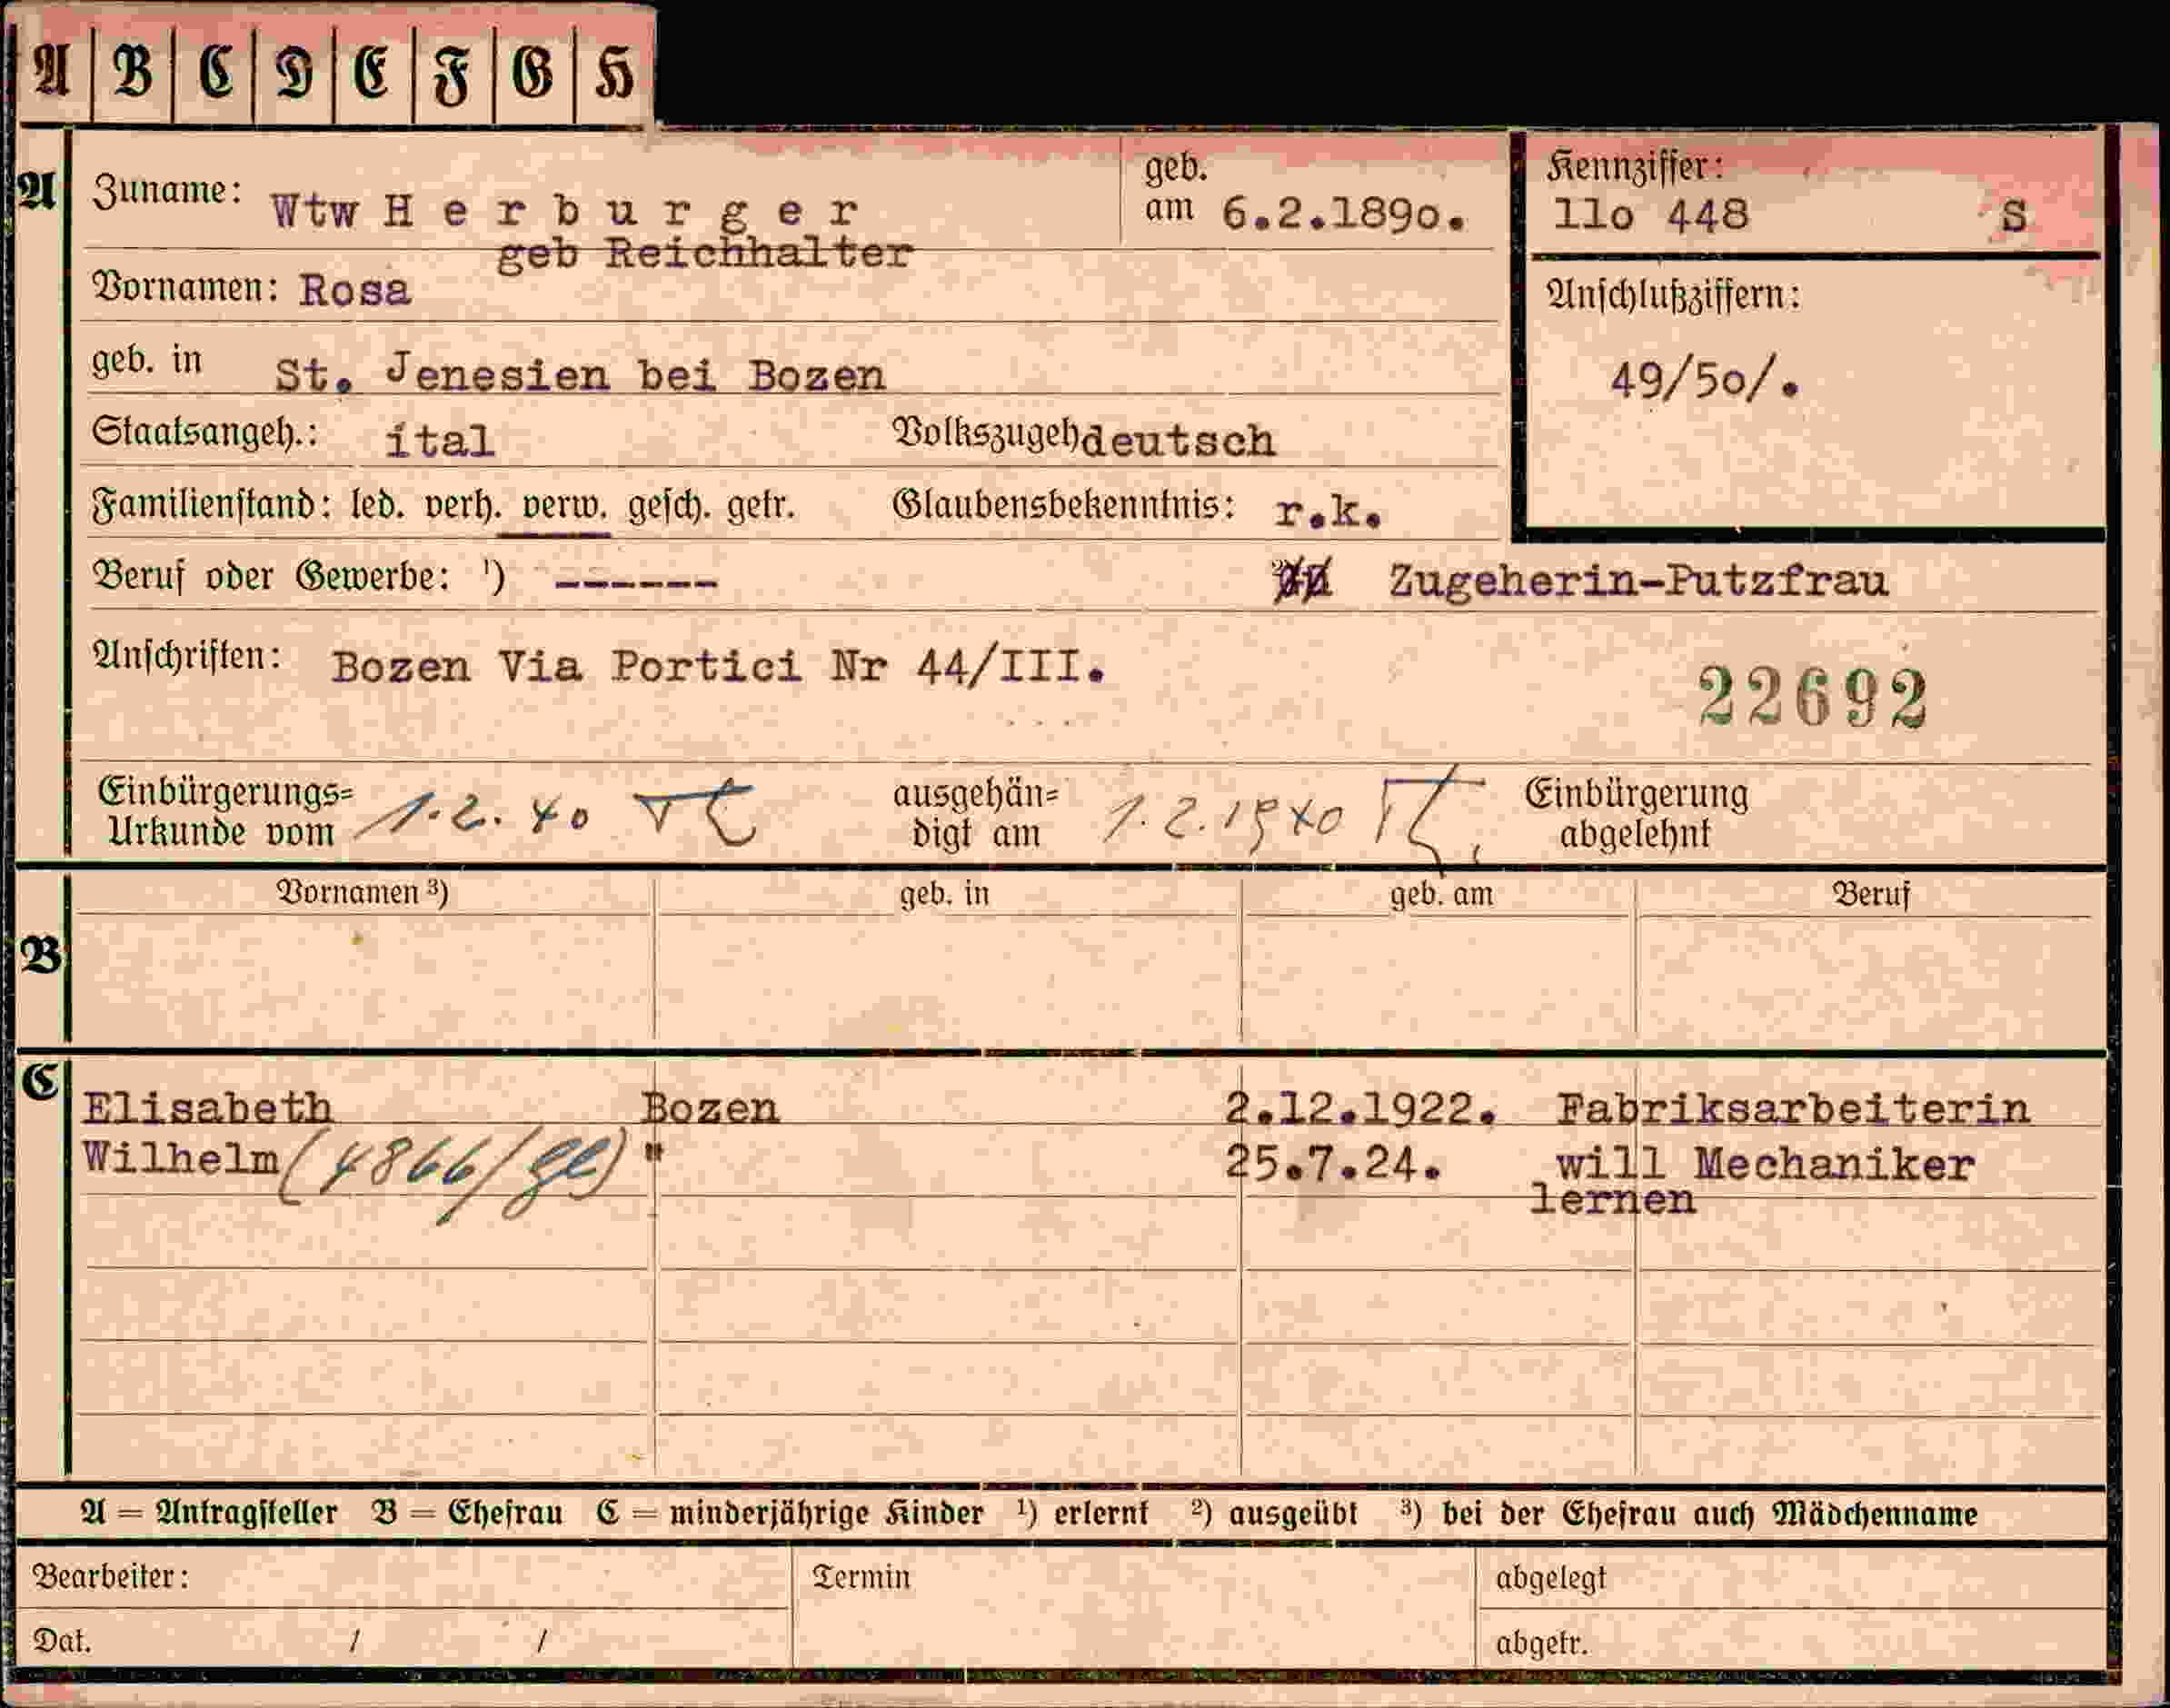 A B C D E F G H
A Zuname: Wtw H e r b u r g e r geb. am 6.2.189o.
geb Reichhalter
Kennziffer: 11o 448 S
Vornamen: Rosa
Anschlußziffern:
49/5o/.
geb. in St. Jenesien bei Bozen
Staatsangeh.: ital Volkszugeh deutsch
Familienstand: led. verh. verw. gesch. getr. Glaubensbekenntnis: r.k.
Beruf oder Gewerbe: ¹) ------ Zugeherin-Putzfrau
Anschriften: Bozen Via Portici Nr 44/III.
22692
Einbürgerungs= Urkunde vom 1.2.40 ausgehän= digt am 1.2.1940 Einbürgerung abgelehnt
B Vornamen ³) geb. in geb. am Beruf
C
Elisabeth Bozen 2.12.1922. Fabriksarbeiterin
Wilhelm (4866/ge) " 25.7.24. will Mechaniker
lernen
A = Antragsteller B = Ehefrau C = minderjährige Kinder ¹) erlernt ²) ausgeübt ³) bei der Ehefrau auch Mädchenname
Bearbeiter: Termin abgelegt
Dat. / / abgetr.